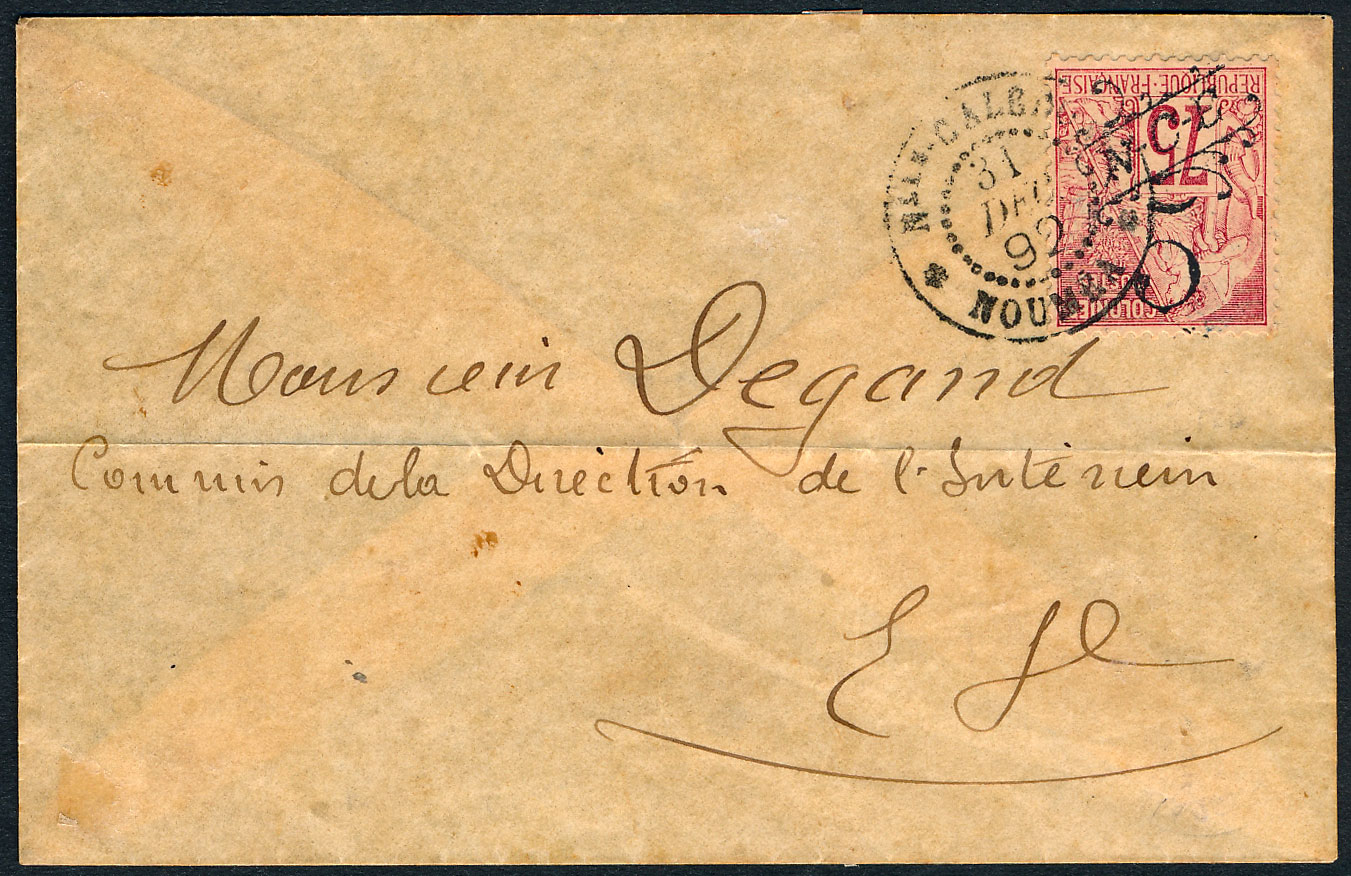 REPUBLIQUE FRANÇAISE
75
N-C-E
5
COLONIE
Nlle CALED
31
DEC
92
NOUMEA
Monsieur Degand
Commis de la Direction de l'Intérieur
E